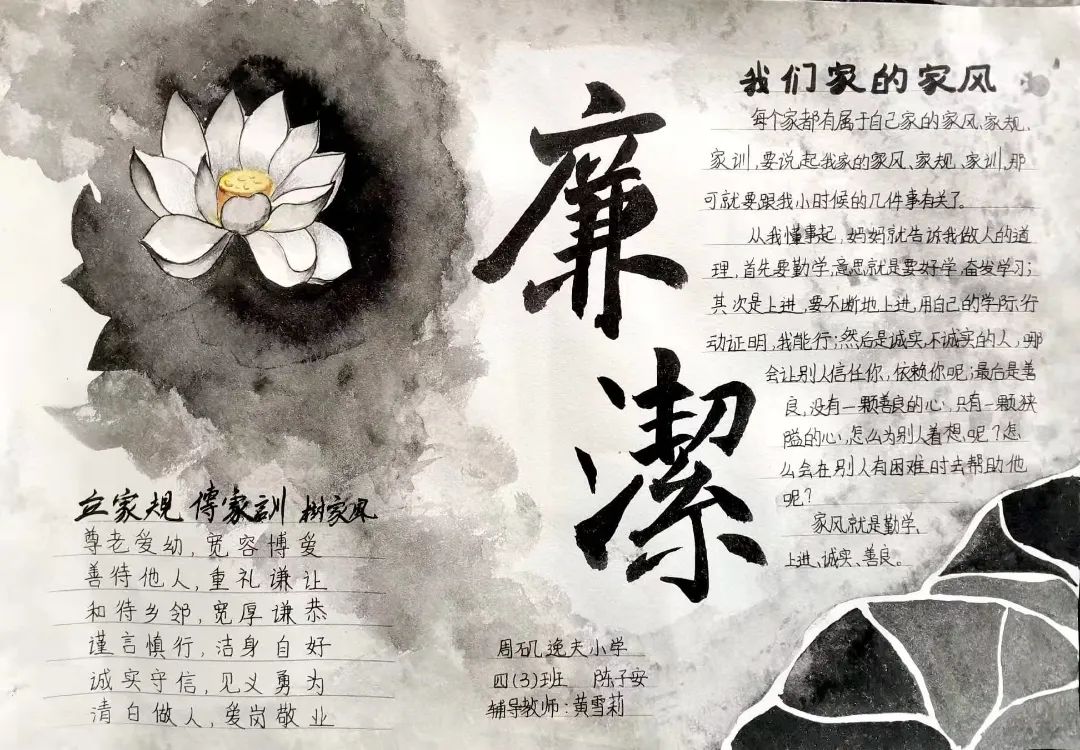 廉潔
我们家的家风
每个家都有属于自己家的家风、家规、
家训,要说起我家的家风、家规、家训,那
可就要跟我小时候的几件事有关了。
从我懂事起,妈妈就告诉我做人的道
理,首先要勤学,意思就是要好学,奋发学习;
其次是上进,要不断地上进,用自己的学际行
动证明,我能行;然后是诚实,不诚实的人,哪
会让别人信任你,依赖你呢;最后是善
良,没有一颗善良的心,只有一颗狭
隘的心,怎么为别人着想呢?怎
么会在别人有困难时去帮助他
呢?
家风就是勤学、
上进、诚实、善良。
立家规 傳家訓 樹家風
尊老爱幼,宽容博爱
善待他人,重礼谦让
和待乡邻,宽厚谦恭
谨言慎行,洁身自好
诚实守信,见义勇为
清白做人,爱岗敬业
周矶逸夫小学
四(3)班 陈子安
辅导教师:黄雪莉